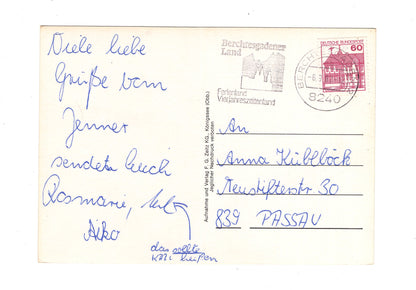 Viele liebe
Grüße vom
Jenner
sendeta Euch
Rosmarie, und
Aiko
das sollte
heißen
Berchtesgadener
Land
Ferienland
Vierjahreszeitenland
DEUTSCHE BUNDESPOST
60
8240
Aufnahme und Verlag F. G. Zeitz KG., Königssee/Obb.
Jeglicher Nachdruck verboten
An
Anna Küblböck
Neustifterstr 30
839 PASSAU